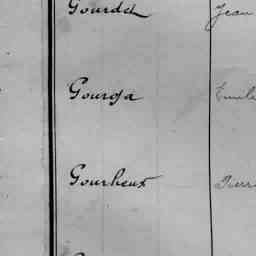 Gourdet Jean
Gourga Emile
Gourheux Pierre